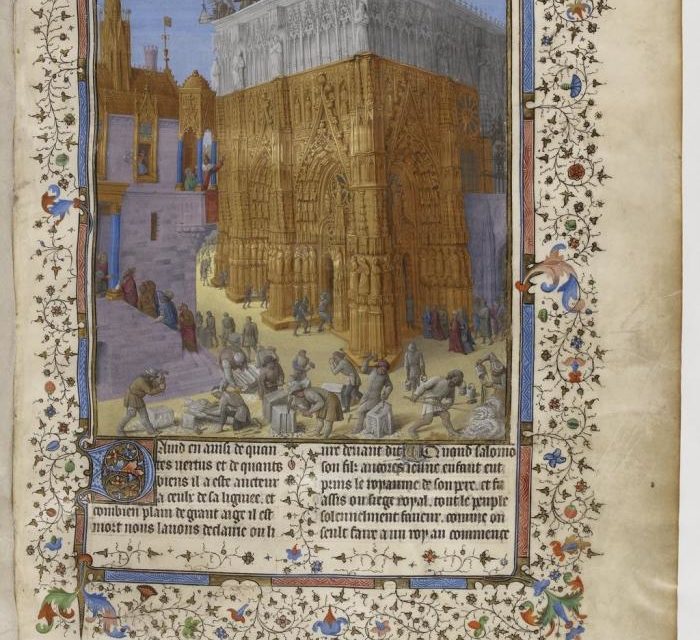 DAuid en amis de quan
tes vertus et de quants
biens il a este aucteur
a ceulx de sa lignee. et
combien plain de grant aige il est
mort nous lauons declaire ou li
ure deuant dit Quand salomo
son filz aincores ieune enfant eut
prins le royaume de son pere. et fu
assis ou siege royal. tout le peuple
solennelment faueur. comme on
seult faire a un roy au commence